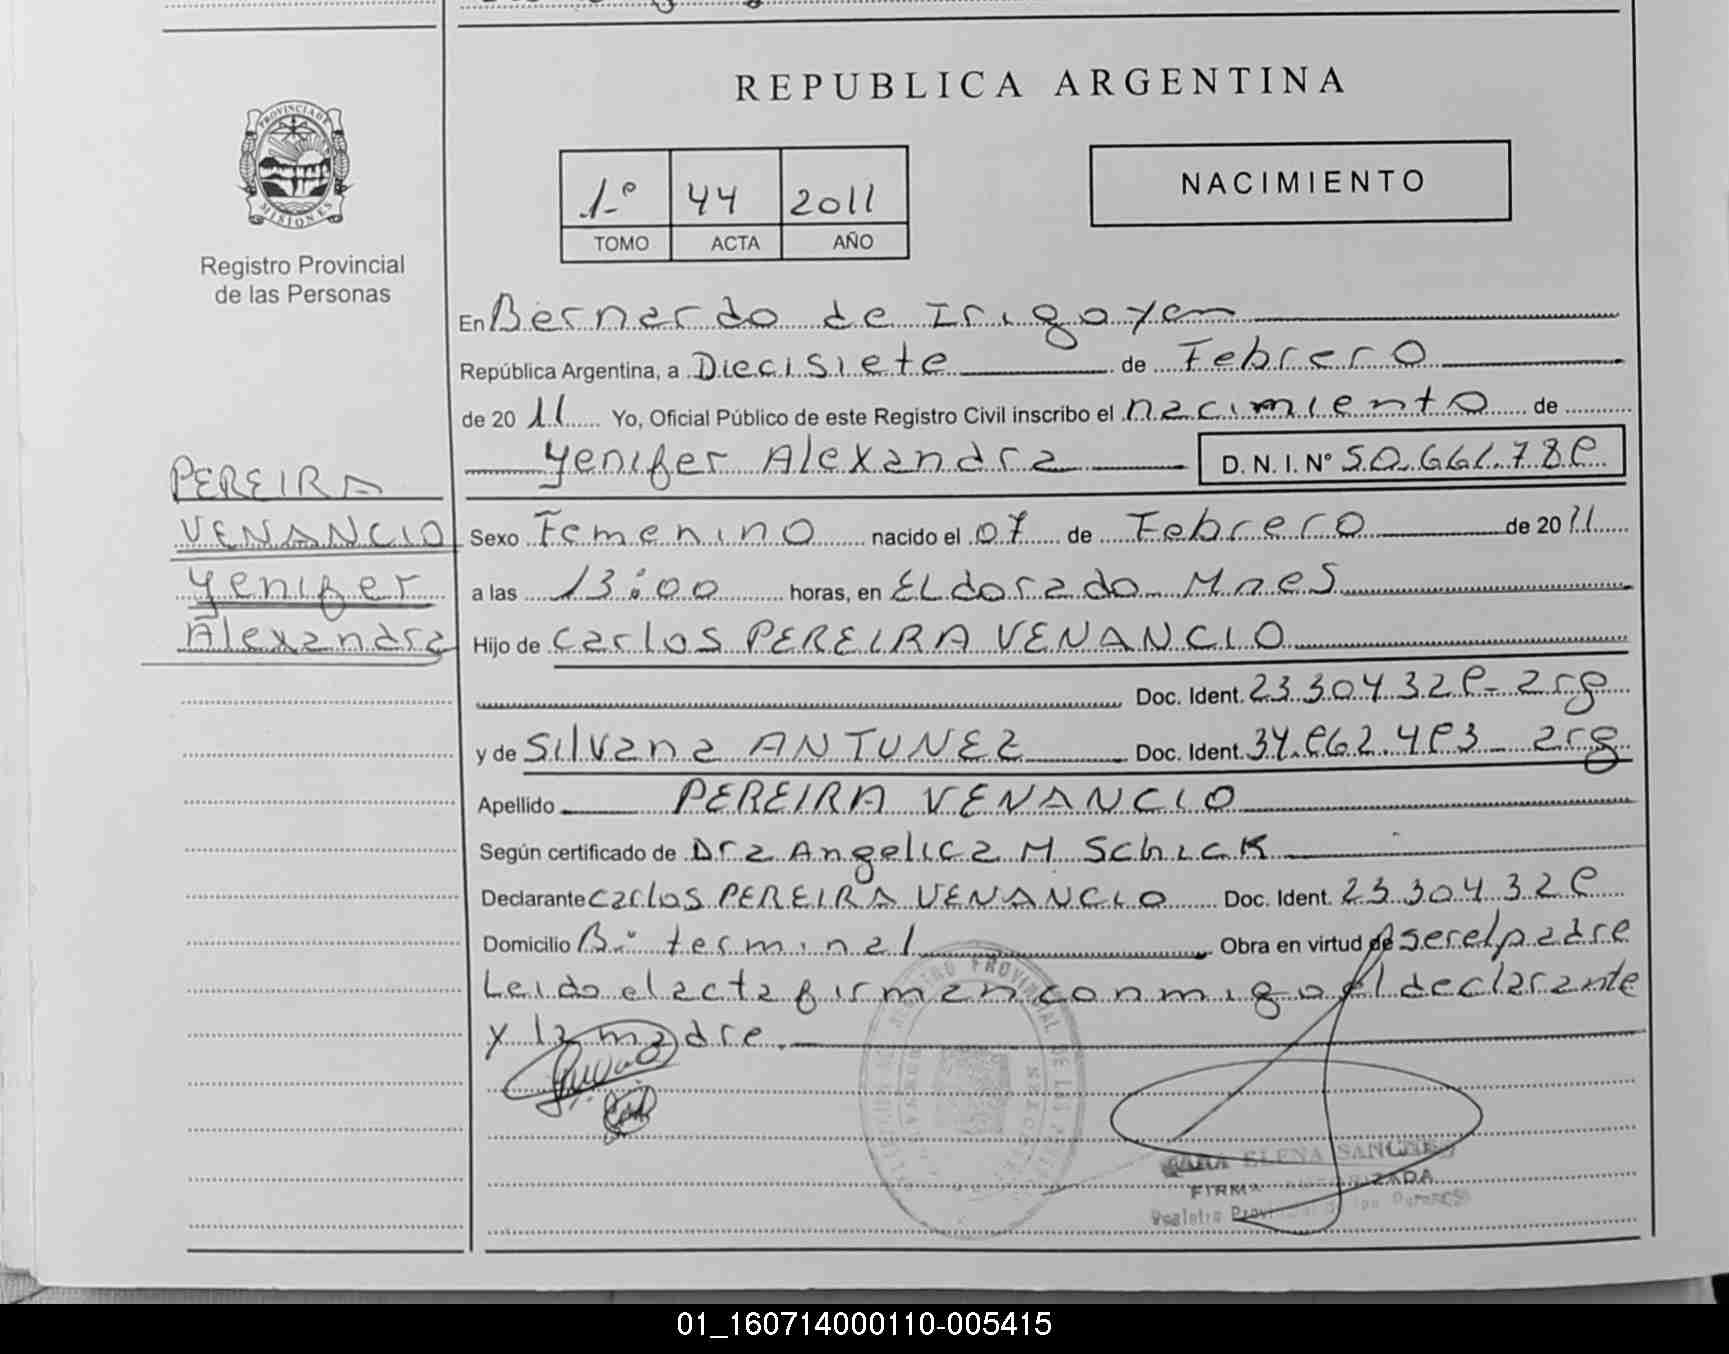 REPUBLICA ARGENTINA
PROVINCIA DE
MISIONES
Registro Provincial
de las Personas
1º 44 2011
TOMO ACTA AÑO
NACIMIENTO
En Bernardo de Irigoyen
República Argentina, a Diecisiete de Febrero
de 2011 Yo, Oficial Público de este Registro Civil inscribo el nacimiento de
Yenifer Alexandra D.N.I. Nº
PEREIRA
VENANCIO
Yenifer
Alexandra
Sexo Femenino nacido el 07 de Febrero de 2011
a las 13:00 horas, en ELdorado Mnes
Hijo de Carlos PEREIRA VENANCIO
Doc. Ident. 23.304.329- arg
y de Silvana ANTUNEZ Doc. Ident. 34.962.493 - arg
Apellido PEREIRA VENANCIO
Según certificado de Dra Angelica M Schick
Declarante Carlos PEREIRA VENANCIO Doc. Ident. 23.304.329
Domicilio Bº terminal Obra en virtud de ser el padre
Leido el acta firman conmigo el declarante
y la madre.
REGISTRO PROVINCIAL DE LAS
ELENA SANCHEZ
FIRMA AUTORIZADA
Registro Provincial de las Personas
01_160714000110-005415